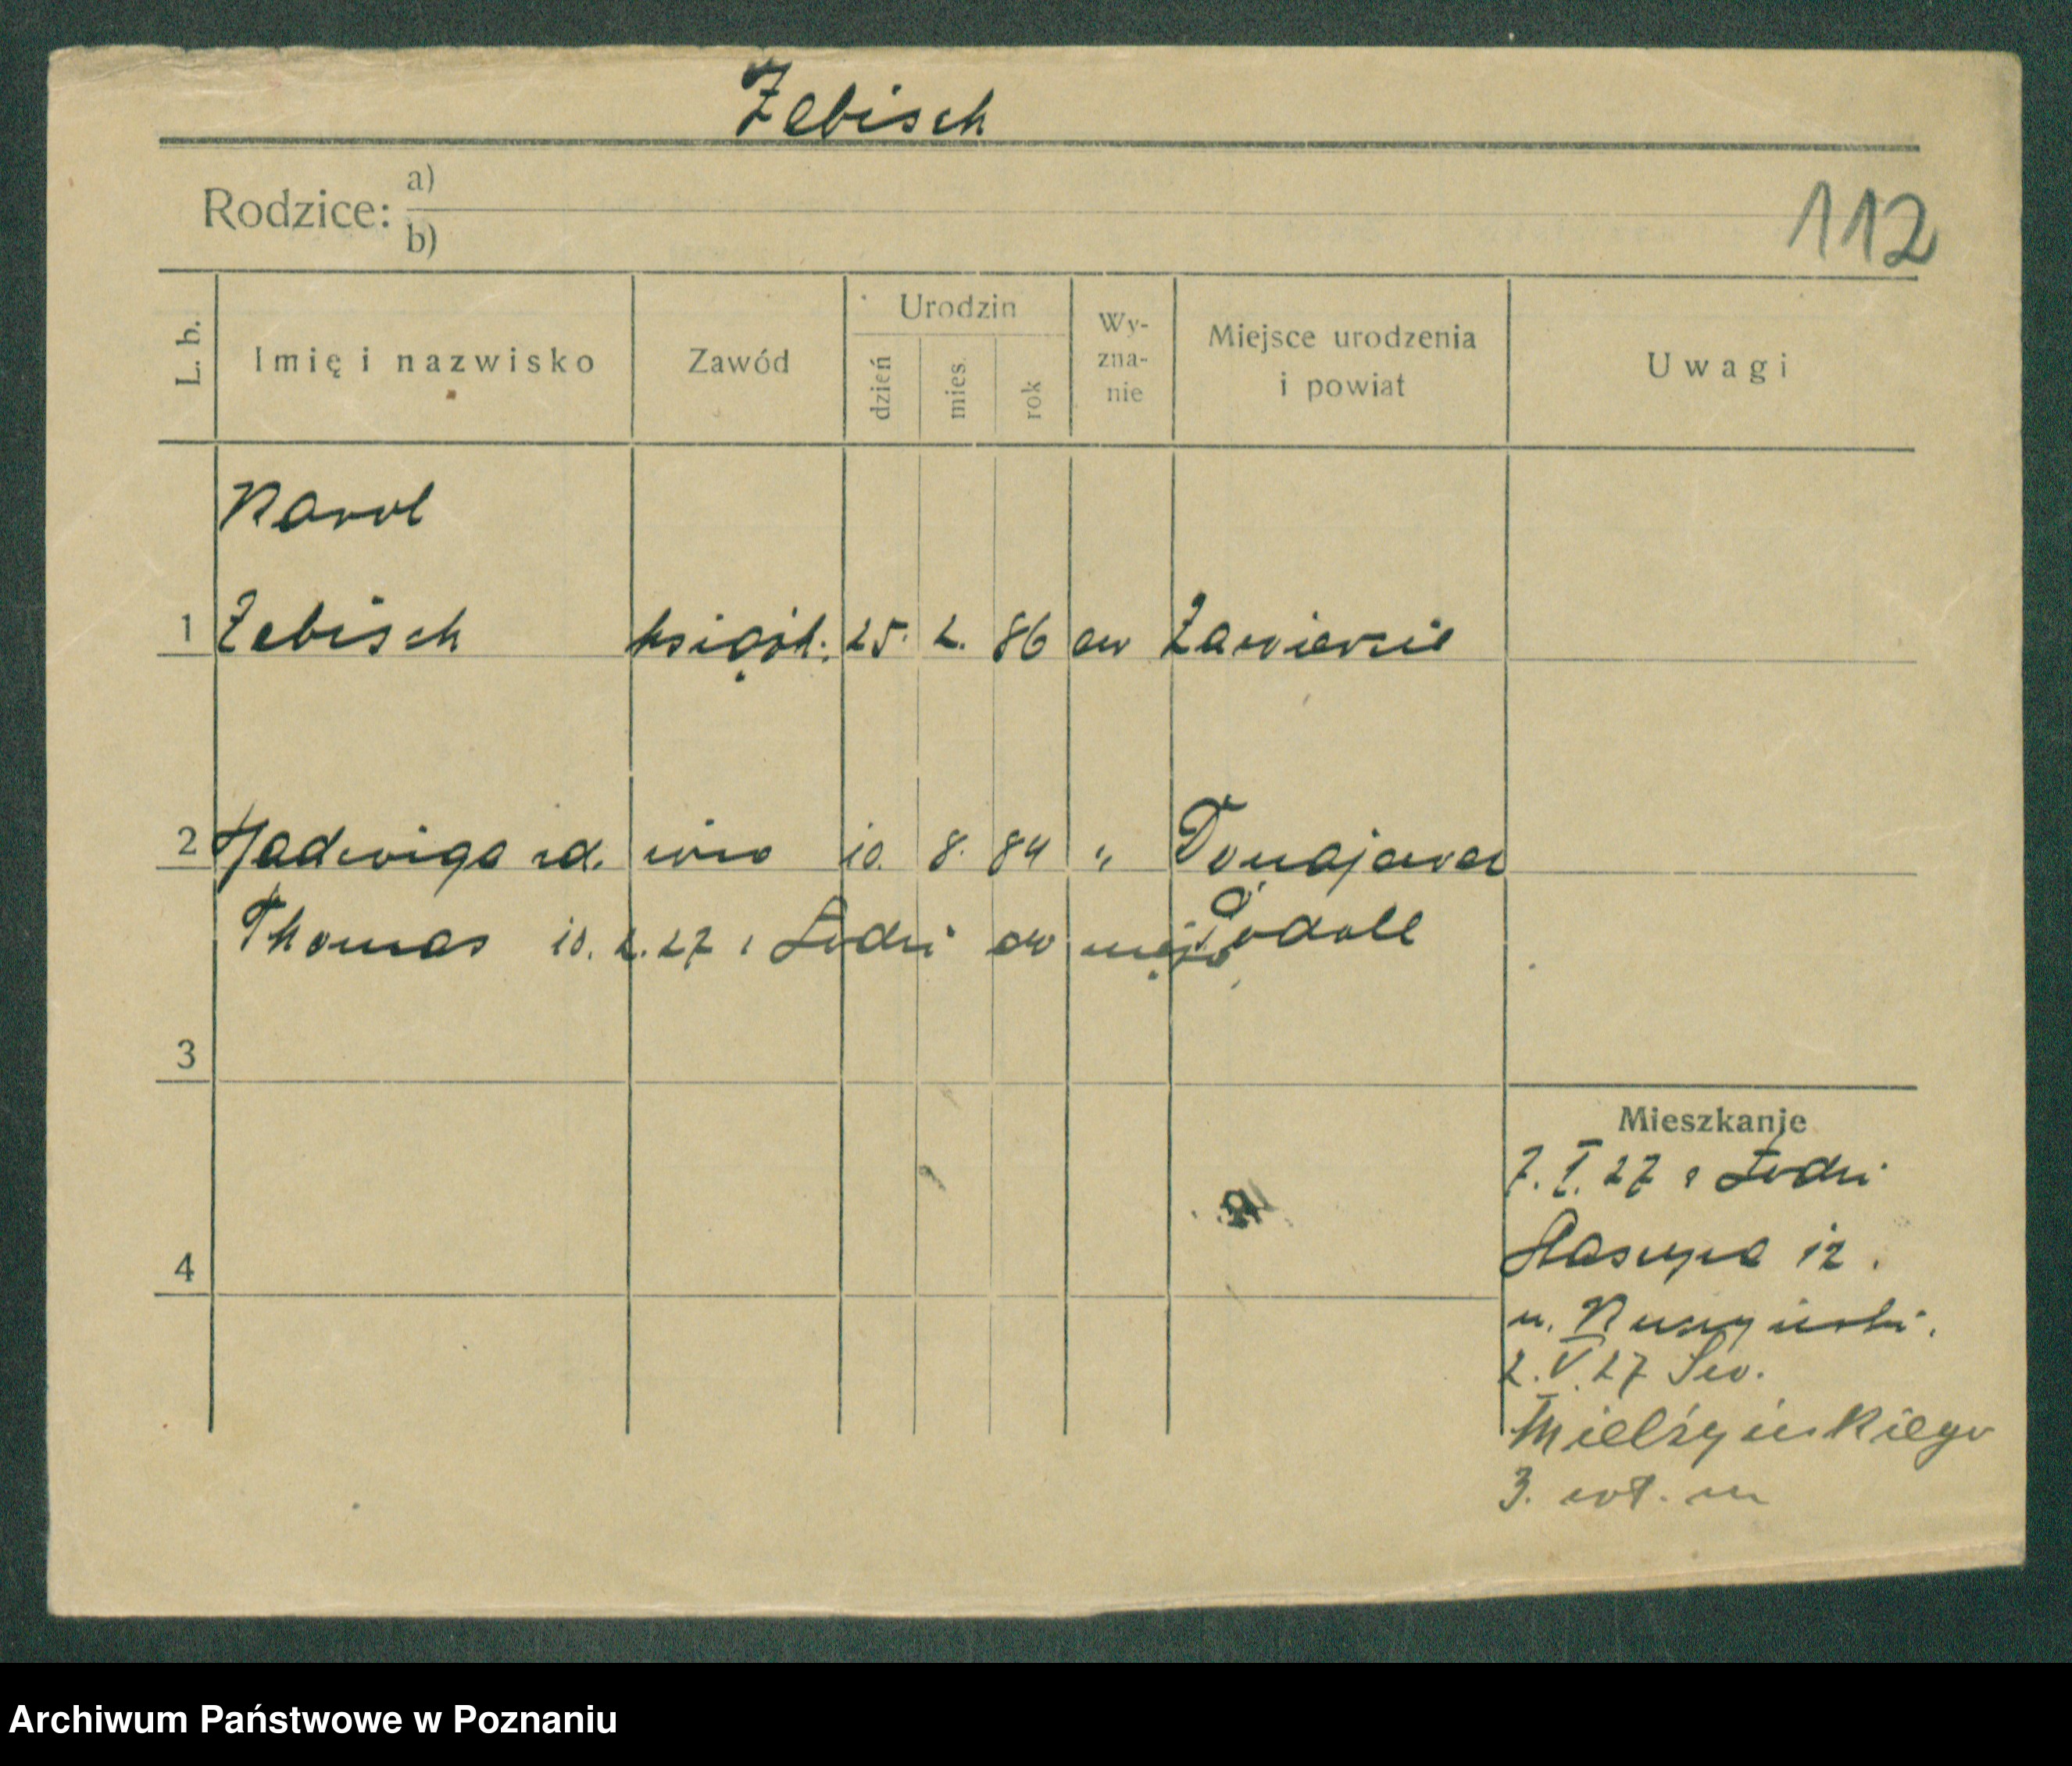 Zebisch
Rodzice: a)
b)
112
L. b. Imię i nazwisko Zawód Urodzin dzień mies. rok Wy-zna-nie Miejsce urodzenia i powiat Uwagi
Karol
1 Zebisch książk. 25. 2. 86 ew Zawiercie
2 Jadwiga zd. 10. 8. 84 "
Thomas 10. 2. 27 z Łodzi do męża
3
Mieszkanie
7. I. 27 z Łodzi
4
12.
u.
2. V. 27 Sew.
Mielżyńskiego
3.
Archiwum Państwowe w Poznaniu